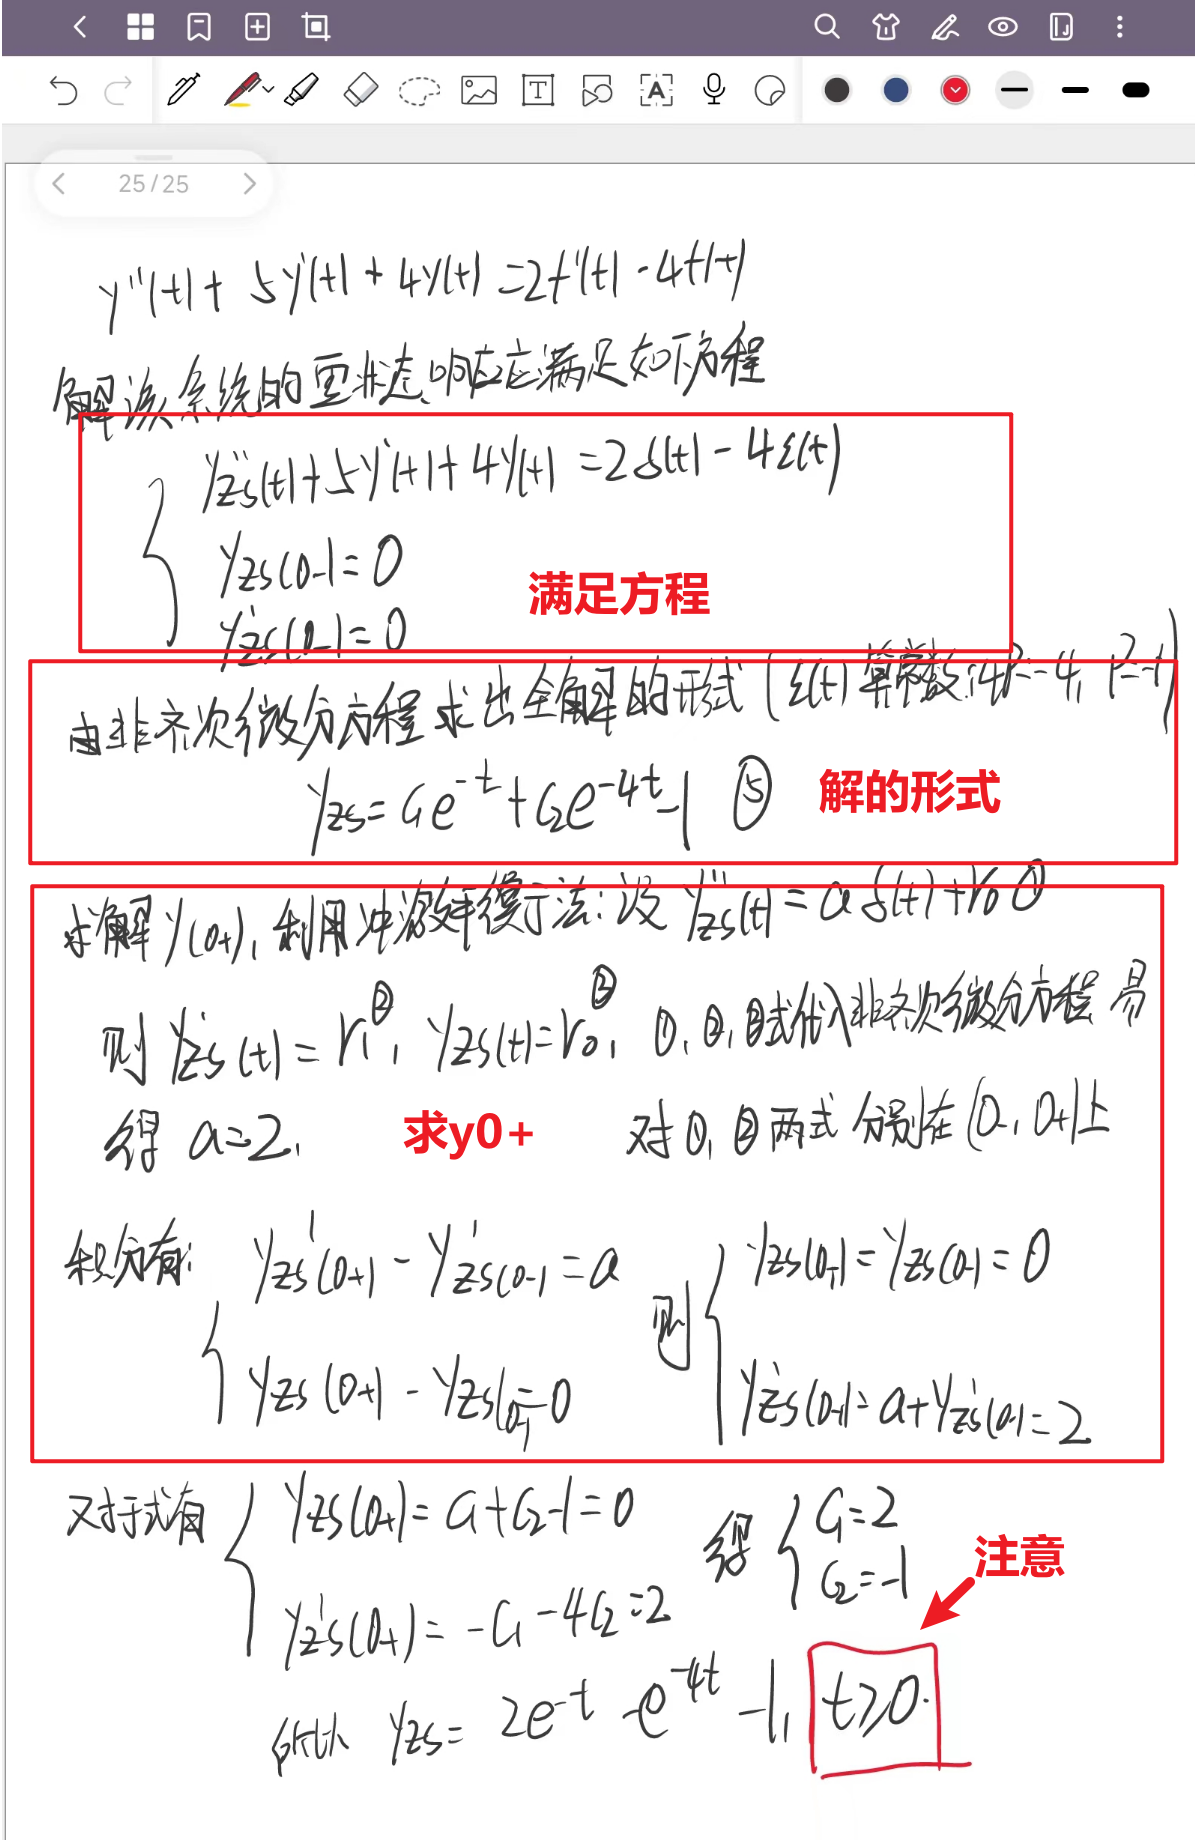 25/25
y''(t)+5y'(t)+4y(t)=2f'(t)-4f(t)
解该系统的零状态响应应满足如下方程
yzs''(t)+5y'(t)+4y(t)=2δ(t)-4ε(t)
yzs(0-)=0
满足方程
yzs'(0-)=0
由非齐次微分方程求出全解的形式(ε(t)算常数:4P=-4, P=-1)
yzs=C1e^-t+C2e^-4t-1 ⑤
解的形式
求解y(0+),利用冲激平衡法:设 yzs''(t)=aδ(t)+r0 ①
则 yzs'(t)=r1②, yzs(t)=r0③, ①,②,③式代入非齐次微分方程 易
得 a=2,
求y0+
对①,②两式分别在(0-,0+)上
积分有:
yzs'(0+)-yzs'(0-)=a
yzs(0+)-yzs(0-)=0
则
yzs(0+)=yzs(0-)=0
yzs'(0+)=a+yzs'(0-)=2
又对于式有
yzs(0+)=C1+C2-1=0
yzs'(0+)=-C1-4C2=2
得
C1=2
C2=-1
注意
所以 yzs=2e^-t-e^-4t-1, t≥0.